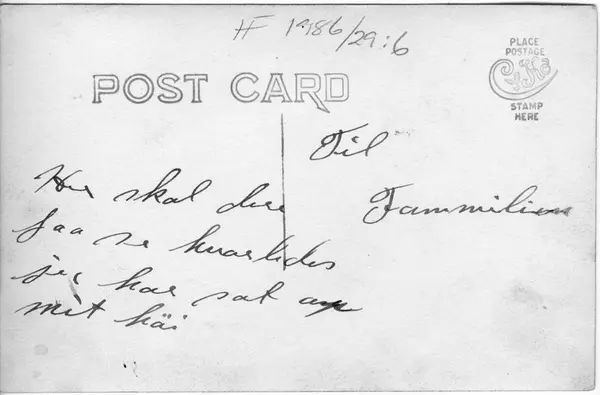 HF 1986/29:6
PLACE
POSTAGE
STAMP
HERE
POST CARD
Til
Fammilien
Her skal dere
faa se hvorledes
jeg har sat op
mit häi